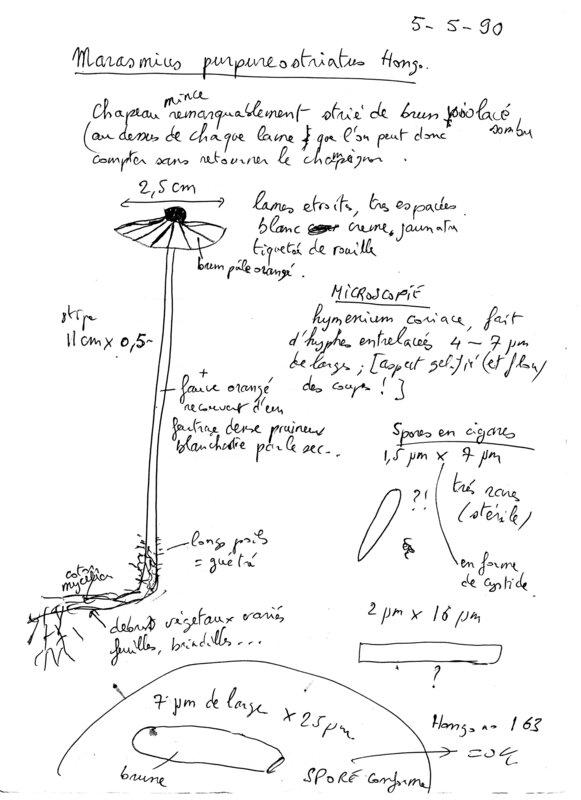 5-5-90
Marasmius purpureostriatus Hongo.
mince
Chapeau remarquablement strié de brun violacé
sombre
(au dessus de chaque lame que l'on peut donc
compter sans retourner le champignon.
2,5 cm
lames etroites, tres espacées
blanc creme, jaunatre
tiquetée de rouille
brun pâle orangé.
MICROSCOPIE
stipe
11 cm x 0,5
hymenium coriace, fait
d'hyphes entrelacés 4 – 7 µm
de large; [aspect (et flou)
des coupes ! ]
+
fauve orangé
recouvert d'un
feutrage dense pruineux
blanchatre par le sec...
Spores en cigares
1,5 µm x 7 µm
?!
très rares
(stérile)
en forme
de cystide.
longs poils
= guetré
coton
mycélien
debris végétaux variés
feuilles, brindilles...
2 µm x 16 µm
?
7 µm de large x 25 µm
brune
SPORE conforme
Hongo no 163